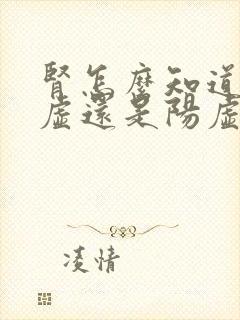 腎怎麼知道
虛還是陽虛
凌情